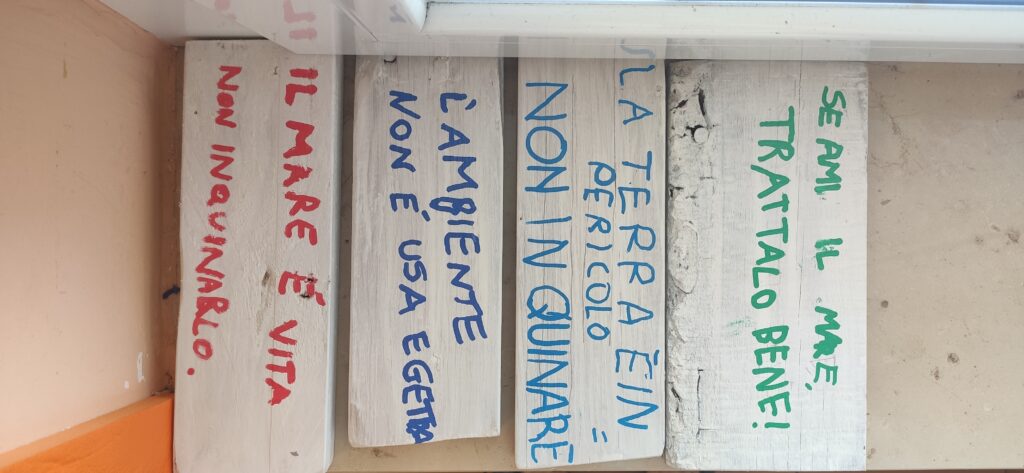 IL MARE É VITA
NON INQUINARLO.
L'AMBIENTE
NON É USA E GETTA
LA TERRA È IN
PERICOLO =
NON INQUINARE
SE AMI IL MARE,
TRATTALO BENE!